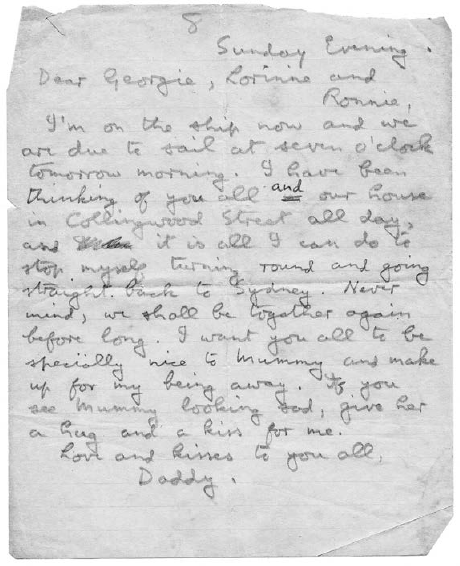 8
Sunday Evening.
Dear Georgie, Lorinne and
Ronnie,
I'm on the ship now and we
are due to sail at seven o'clock
tomorrow morning. I have been
thinking of you all and our house
in Collingwood Street all day,
and it is all I can do to
stop myself turning round and going
straight back to Sydney. Never
mind, we shall be together again
before long. I want you all to be
speciïlly nice to Mummy and make
up for my being away. If you
see Mummy looking sad, give her
a hug and a kiss for me.
Love and kisses to you all,
Daddy.